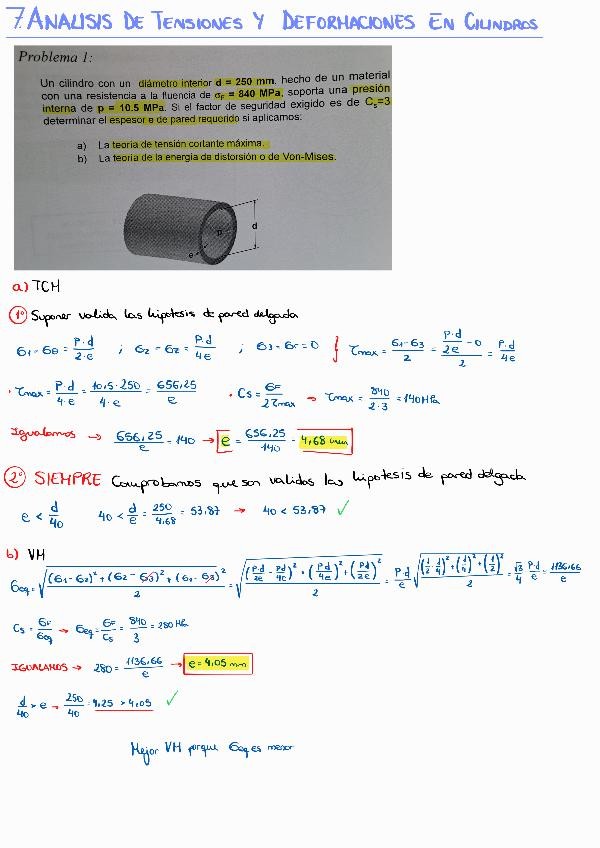 7. ANALISIS DE TENSIONES Y DEFORMACIONES EN CILINDROS
Problema 1:
Un cilindro con un diámetro interior d = 250 mm, hecho de un material
con una resistencia a la fluencia de σF = 840 MPa, soporta una presión
interna de p = 10.5 MPa. Si el factor de seguridad exigido es de Cs=3
determinar el espesor e de pared requerido si aplicamos:
a) La teoría de tensión cortante máxima.
b) La teoría de la energía de distorsión o de Von-Mises.
p
d
e
a) TCM
1º Suponer valida las hipotesis de pared delgada
σ1 = σθ = P·d / 2·e ; σ2 = σz = P·d / 4e ; σ3 = σr = 0 } τmax = σ1-σ3 / 2 = (P·d / 2e - 0) / 2 = P·d / 4e
• τmax = P·d / 4·e = 10,5·250 / 4·e = 656,25 / e • Cs = σF / 2τmax → τmax = 840 / 2·3 = 140 MPa
Igualamos → 656,25 / e = 140 → e = 656,25 / 140 = 4,68 mm
2º SIEMPRE Comprobamos que son validas las hipotesis de pared delgada
e < d / 40 40 < d / e = 250 / 4,68 = 53,87 → 40 < 53,87 ✓
b) VM
σeq = √((σ1-σ2)² + (σ2-σ3)² + (σ1-σ3)² / 2) = √((P·d / 2e - Pd / 4e)² + (P·d / 4e)² + (Pd / 2e)² / 2) = P·d / e √((1/2 - 1/4)² + (1/4)² + (1/2)² / 2) = √3 / 4 P·d / e = 1136,66 / e
Cs = σF / σeq → σeq = σF / Cs = 840 / 3 = 280 MPa
IGUALAMOS → 280 = 1136,66 / e → e = 4,05 mm
d / 40 > e → 250 / 40 = 4,25 > 4,05 ✓
Mejor VM porque σeq es menor